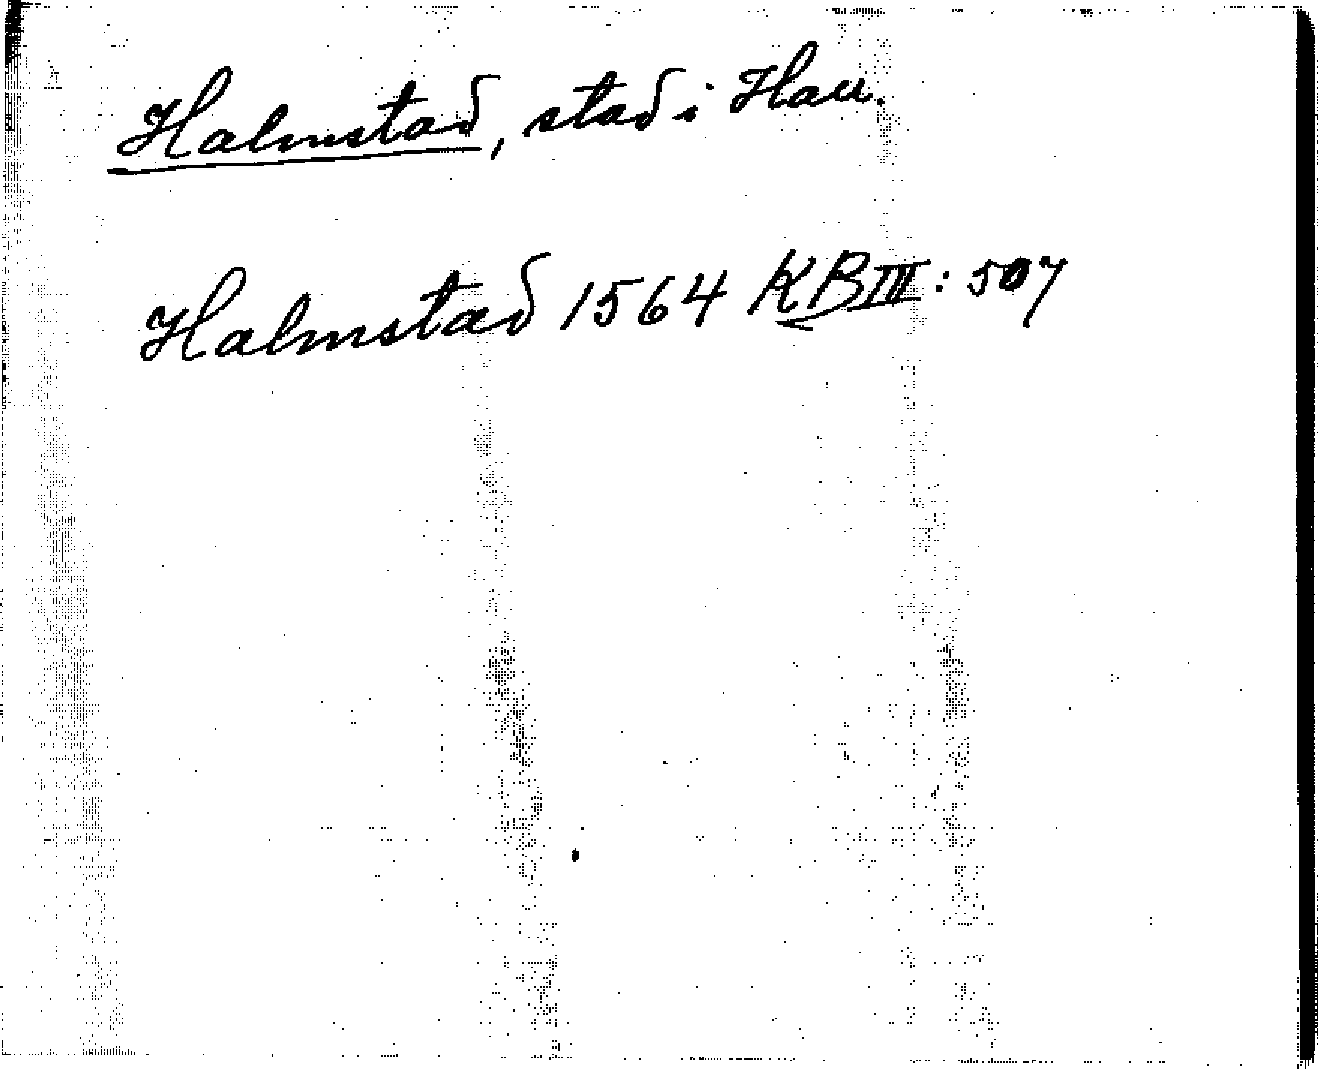 Halmstad, stad i Hall.
Halmstad 1564 KB III: 507